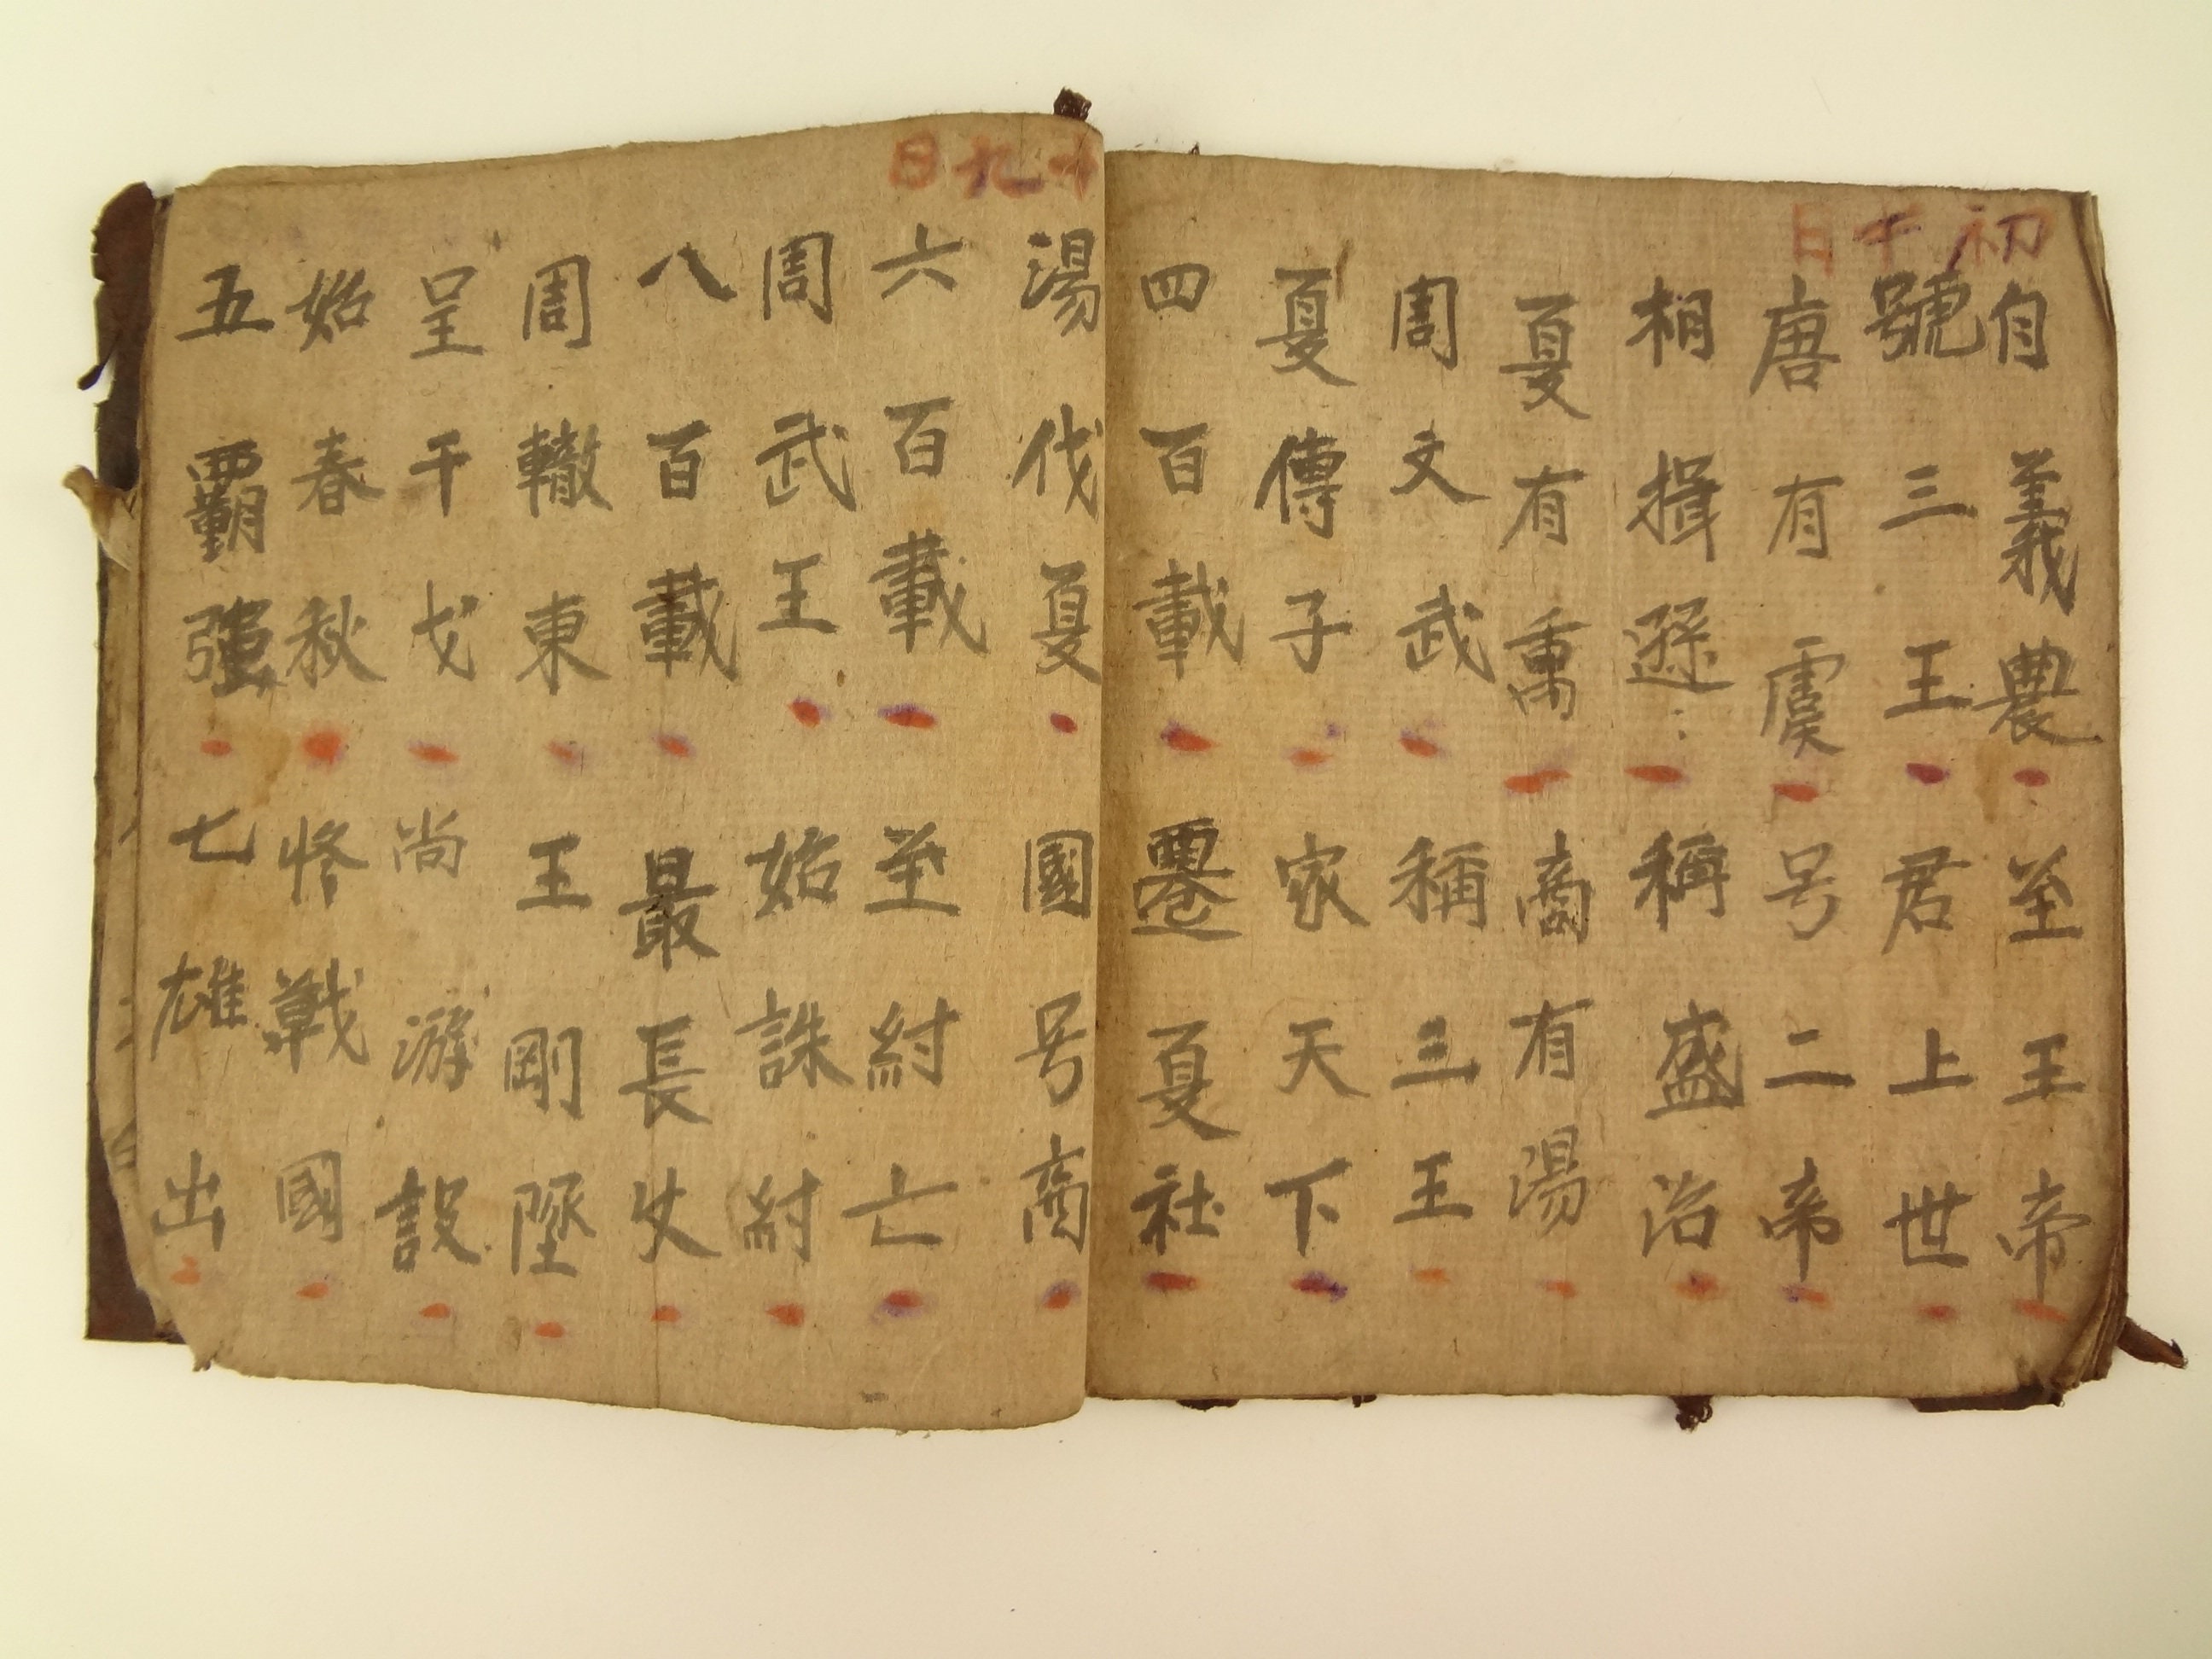 初十日
自義農至王帝
號三王君上世
唐有虞号二帝
相揖遜稱盛治
夏有禹商有湯
周文武稱三王
夏傳子家天下
四百載遷夏社
十九日
湯伐夏國号商
六百載至紂亡
周武王始誅紂
八百載最長久
周轍東王剛墜
呈干戈尚游説
始春秋終戰國
五覇强七雄出